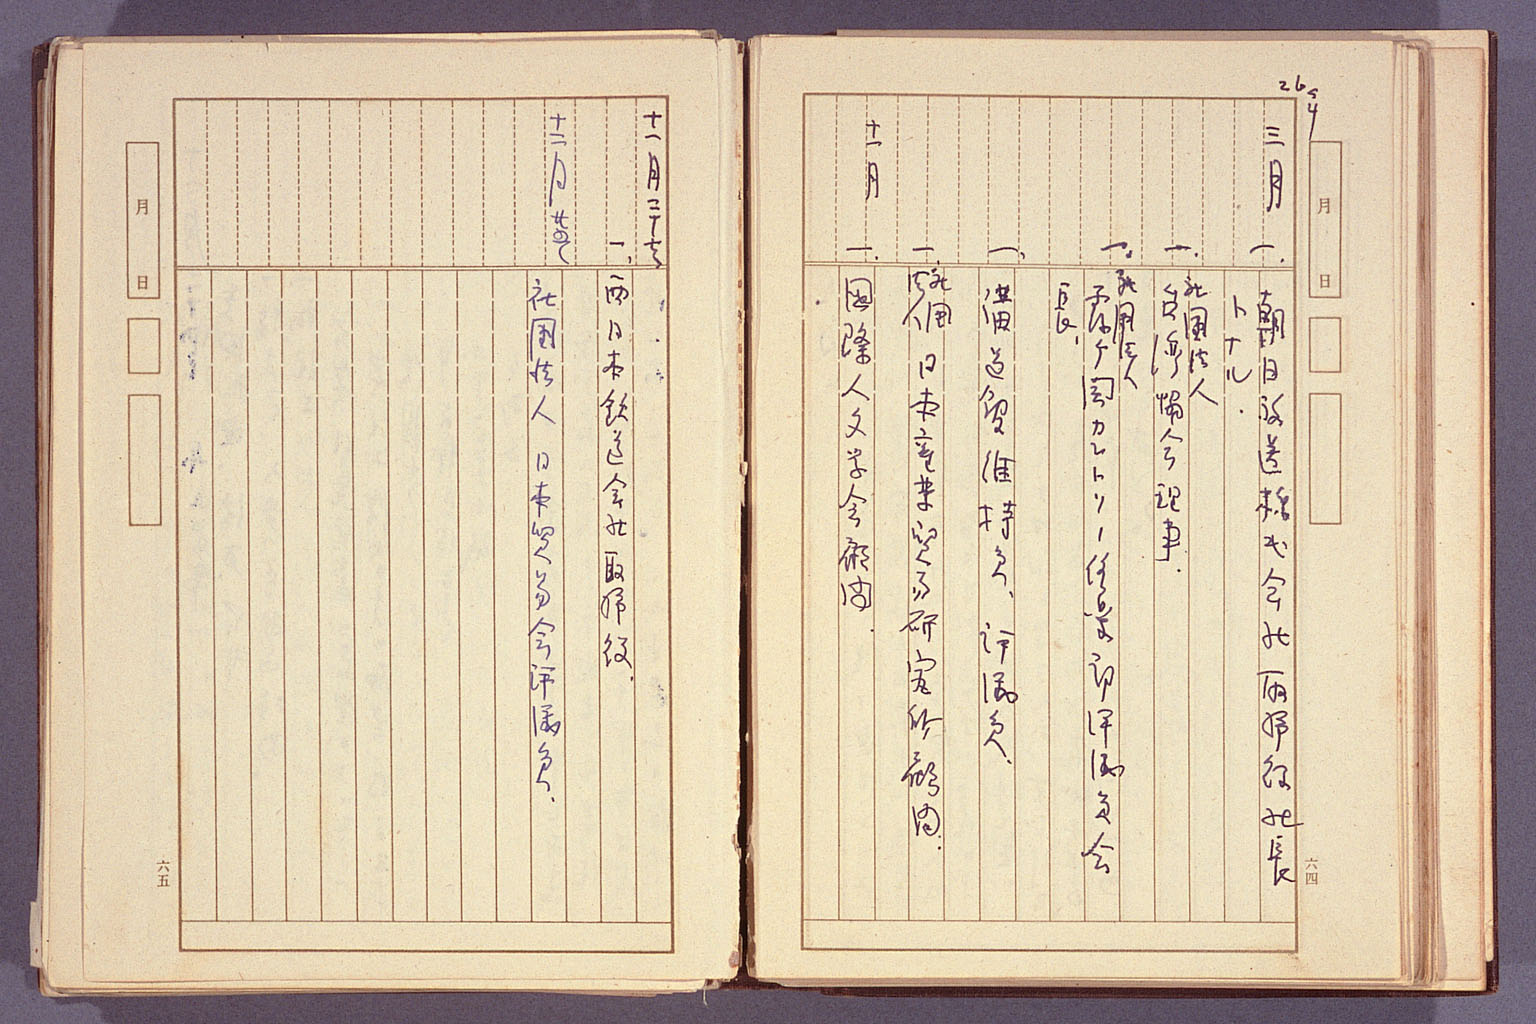 三月
一、朝日放送株式会社取締役社長
トナル.
一、社団法人
台湾協会理事.
一、社団法人
カントリー倶楽部評議員会
長.
一、
維持員、評議員.
一、社団
法人 日本産業貿易研究所顧問.
十一月
一、国際人文学会顧問.
六四
月 日
十一月二十
一、西日本鉄道会社取締役.
十二月
社団法人 日本貿易会評議員.
六五
月 日